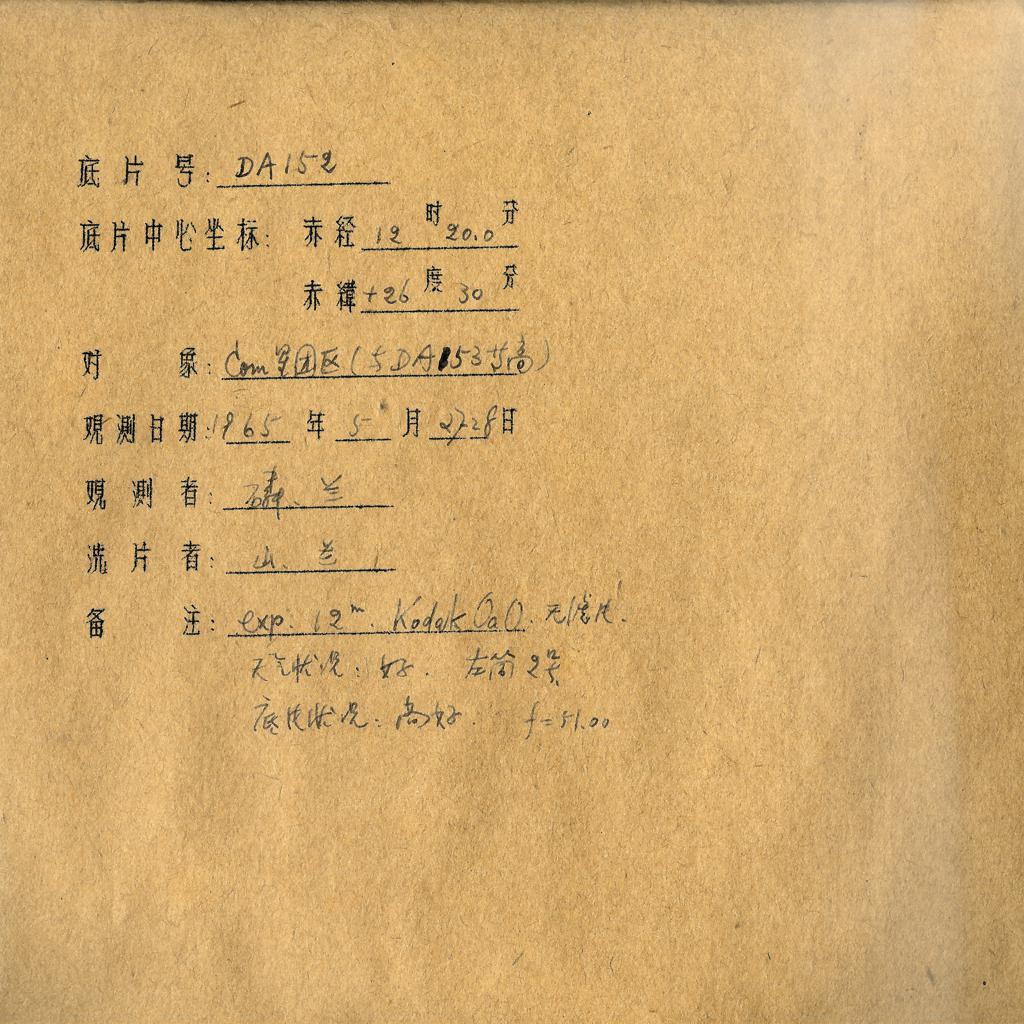 底片号: DA152
底片中心坐标: 赤经 12 时 20.0 分
赤緯 +26 度 30 分
对 象: Com 星团区 (与DA153共高)
观测日期: 1965 年 5 月 27-28 日
观测者: 兰
洗片者: 山、兰
备 注: exp. 12ᵐ. Kodak OaO. 无滤片.
天气状况: 好. 左筒2号
底片状况: 尚好. f=51.00